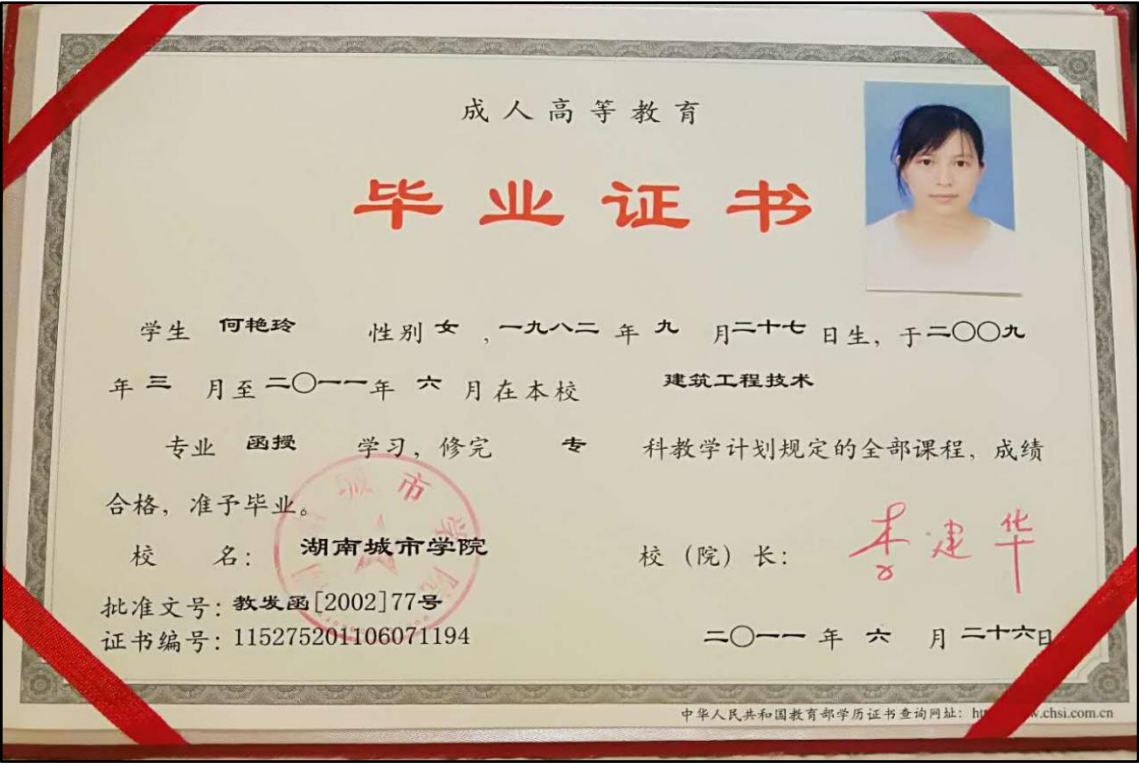 成人高等教育
毕业证书
学生 何艳玲 性别 女 ，一九八二 年 九 月二十七 日生，于二〇〇九
年 三 月至 二〇一一 年 六 月在本校 建筑工程技术
专业 函授 学习，修完 专 科教学计划规定的全部课程，成绩
合格，准予毕业。
校 名： 湖南城市学院
校（院）长： 李建华
批准文号：教发函[2002]77号
证书编号：115275201106071194
二〇一一 年 六 月 二十六日
中华人民共和国教育部学历证书查询网址：ht w.chsi.com.cn